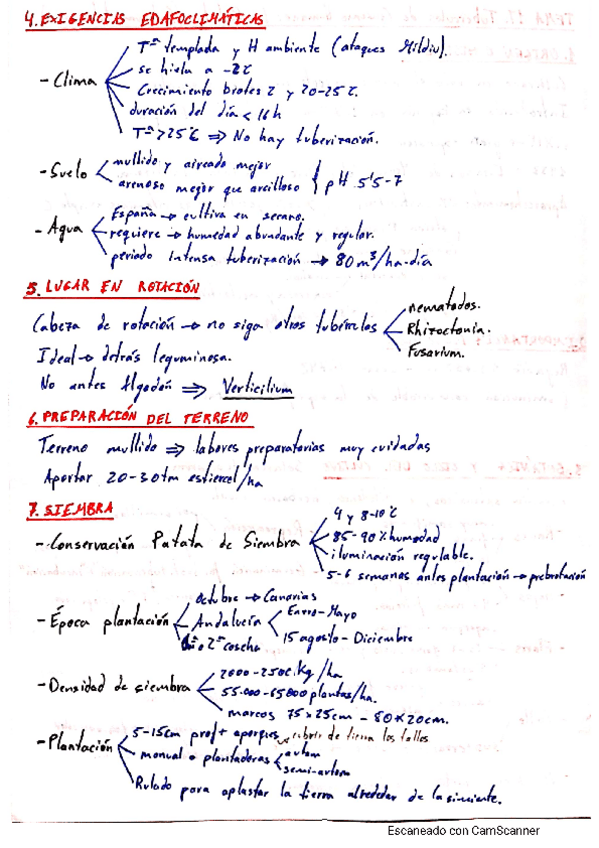 4. EXIGENCIAS EDAFOCLIMÁTICAS
- Clima
Tª templada y H ambiente (ataques Mildiu).
se hiela a -2ºC
Crecimiento brotes 2 y 20-25ºC.
duración del día < 16h
Tª > 25ºC ⇒ No hay tuberización.
- Suelo
mullido y aireado mejor
arenoso mejor que arcilloso } pH 5'5-7
- Agua
España → cultiva en secano.
requiere → humedad abundante y regular.
periodo intensa tuberización → 80 m³/ha·día
5. LUGAR EN ROTACIÓN
Cabeza de rotación → no siga otros tubérculos
nematodos.
Rhizoctonia.
Fusarium.
Ideal → detrás leguminosa.
No antes Algodón ⇒ Verticilium
6. PREPARACIÓN DEL TERRENO
Terreno mullido ⇒ labores preparatorias muy cuidadas
Aportar 20-30tm estiércol/ha
7. SIEMBRA
- Conservación Patata de Siembra
4 y 8-10ºC
85-90% humedad
iluminación regulable.
5-6 semanas antes plantación → prebrotación
- Época plantación
octubre → Canarias
Andalucía
Enero-Mayo
15 agosto - Diciembre
o 2ª cosecha
- Densidad de siembra
2000-2500 Kg/ha
55.000-65000 plantas/ha.
marcos 75x25cm - 80x20cm.
- Plantación
5-15cm prof + aporques cubrir de tierra los tallos
manual o plantadoras
autom
semi-autom
Rulado para aplastar la tierra alrededor de la simiente.
Escaneado con CamScanner